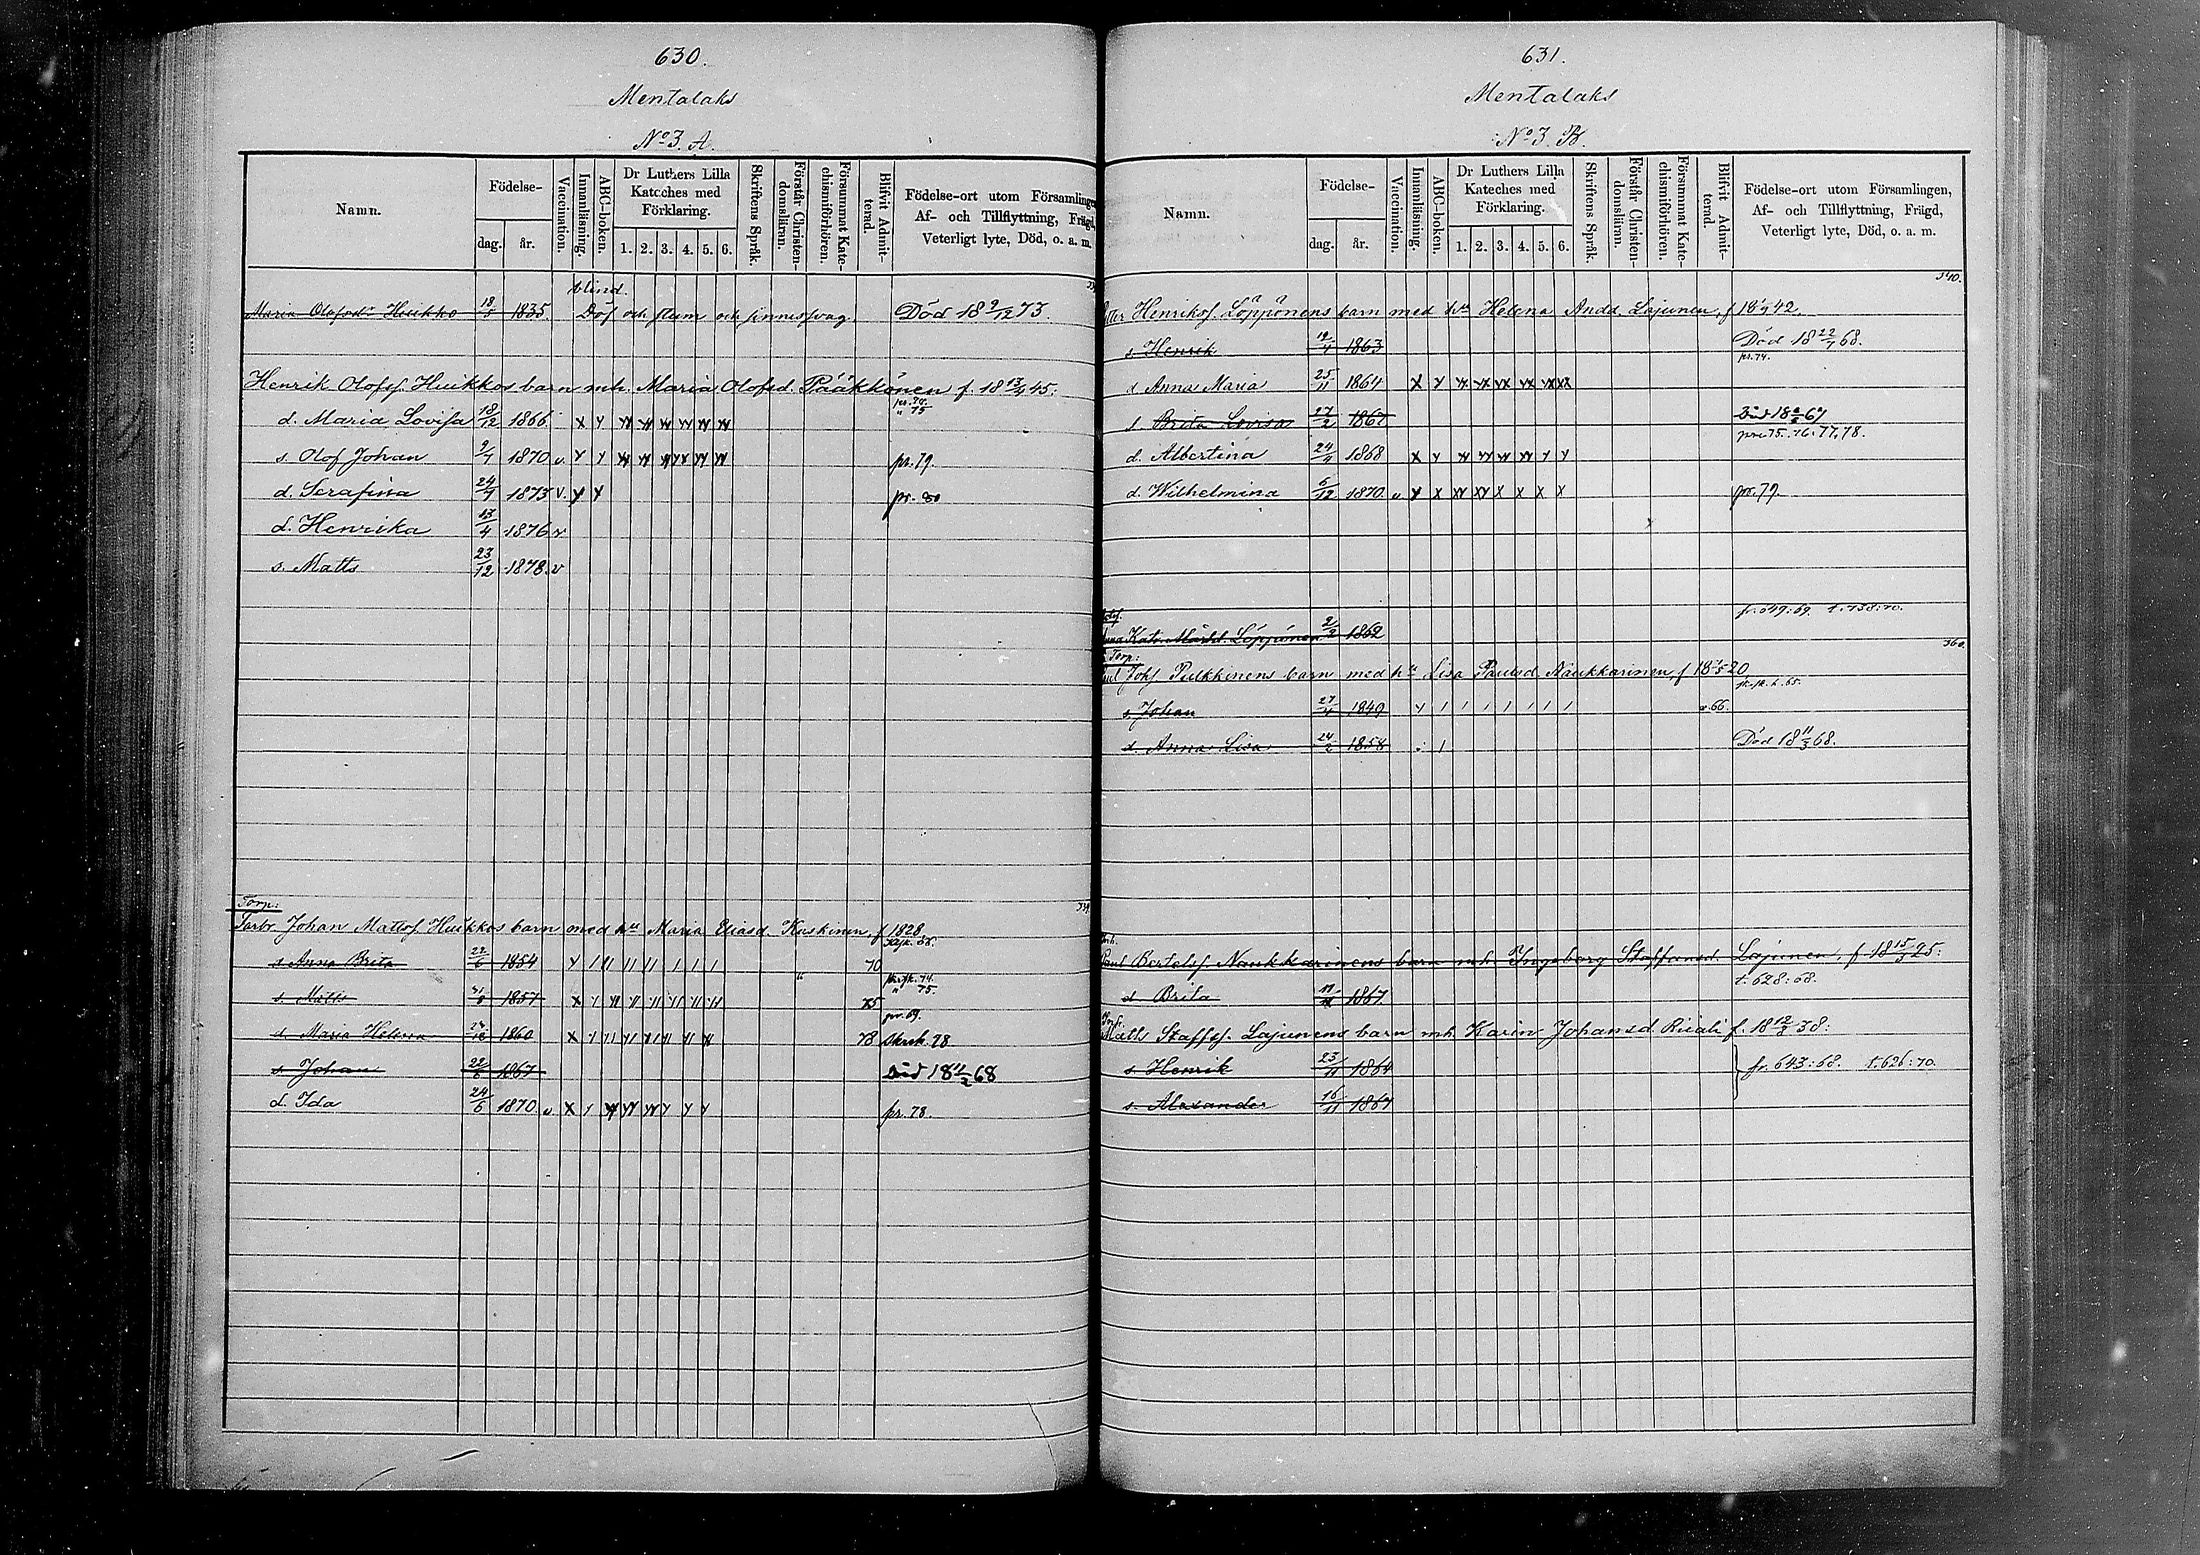 630.
Mentalaks
No 3. A.
Namn. Födelse- dag. år. Vaccination. Innanläsning. ABC-boken. Dr Luthers Lilla Kateches med Förklaring. 1. 2. 3. 4. 5. 6. Skriftens Språk. Förstår Christendomsläran. Försummat Katechismiförhören. Blifvit Admitterad. Födelse-ort utom Församlingen, Af- och Tillflyttning, Frägd, Veterligt lyte, Död, o. a. m.
blind.
Maria Olofsdr Huikko 18/5 1835. Döf och stum och sinnessvag. Död 18 9/12 73.
Henrik Olofsf. Huikkos barn mh. Maria Olofsd. Pääkkönen f. 18 13/4 45:
pr. 74.
" 75
d. Maria Lovisa 18/12 1866.
s. Olof Johan 9/7 1870 v. pr. 79.
d. Serafina 24/7 1873 v. pr. 80
d. Henrika 13/4 1876 v
s. Matts 23/12 1878. v
Torp:
Torbr Johan Mattsf. Huikkos barn med hu Maria Eliasd. Kuskinen, f 1828
s Anna Brita 22/6 1854 70
s. Matts 1857 75
pr. 69.
d Maria Helena 1860 78 skrsk. 78
s. Johan 22/6 1867 Död 18 11/2 68
d. Ida 24/6 1870. v pr. 78.
631.
Mentalaks
No 3. B.
Namn. Födelse- dag. år. Vaccination. Innanläsning. ABC-boken. Dr Luthers Lilla Kateches med Förklaring. 1. 2. 3. 4. 5. 6. Skriftens Språk. Förstår Christendomsläran. Försummat Katechismiförhören. Blifvit Admitterad. Födelse-ort utom Församlingen, Af- och Tillflyttning, Frägd, Veterligt lyte, Död, o. a. m.
340.
Petter Henriksf. Löppönens barn med hu Helena Andd. Lajunen, f 18 1/9 42.
s. Henrik 12/4 1863 Död 18 22/7 68.
pr. 74.
d Anna Maria 25/11 1864
Brita Lovisa 27/2 1867 Död 18 67
pr. 75. 76. 77. 78.
d. Albertina 24/4 1868
d. Wilhelmina 6/12 1870. v pr. 79.
fr. 649:69. t. 738:70.
Anna Kat. Mårtd. Löppönen 2/2 1862
360.
Torp:
Paul Johsf Pulkkinens barn med hu Lisa Paulsd. Naukkarinen, f 18 20
s. Johan 27/4 1849 a. 66.
d. Anna Lisa 24/2 1858 Död 18 11/3 68.
Inh.
Paul Bertelsf. Naukkarinens barn mh. Ingeborg Staffansd. Lajunen, f. 18 15/3 25:
t. 628:68.
d Brita 1867
Inh.
Matts Staffsf. Lajunens barn mh. Karin Johansd. Riiali f. 18 12/2 38:
s. Henrik 23/11 1864 fr. 643:68. t. 626:70.
s. Alexander 16/11 1867